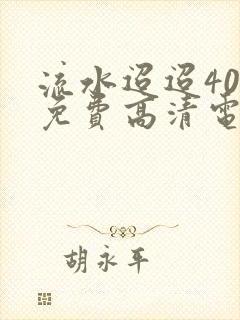 流水迢迢40
免費高清電
胡永平